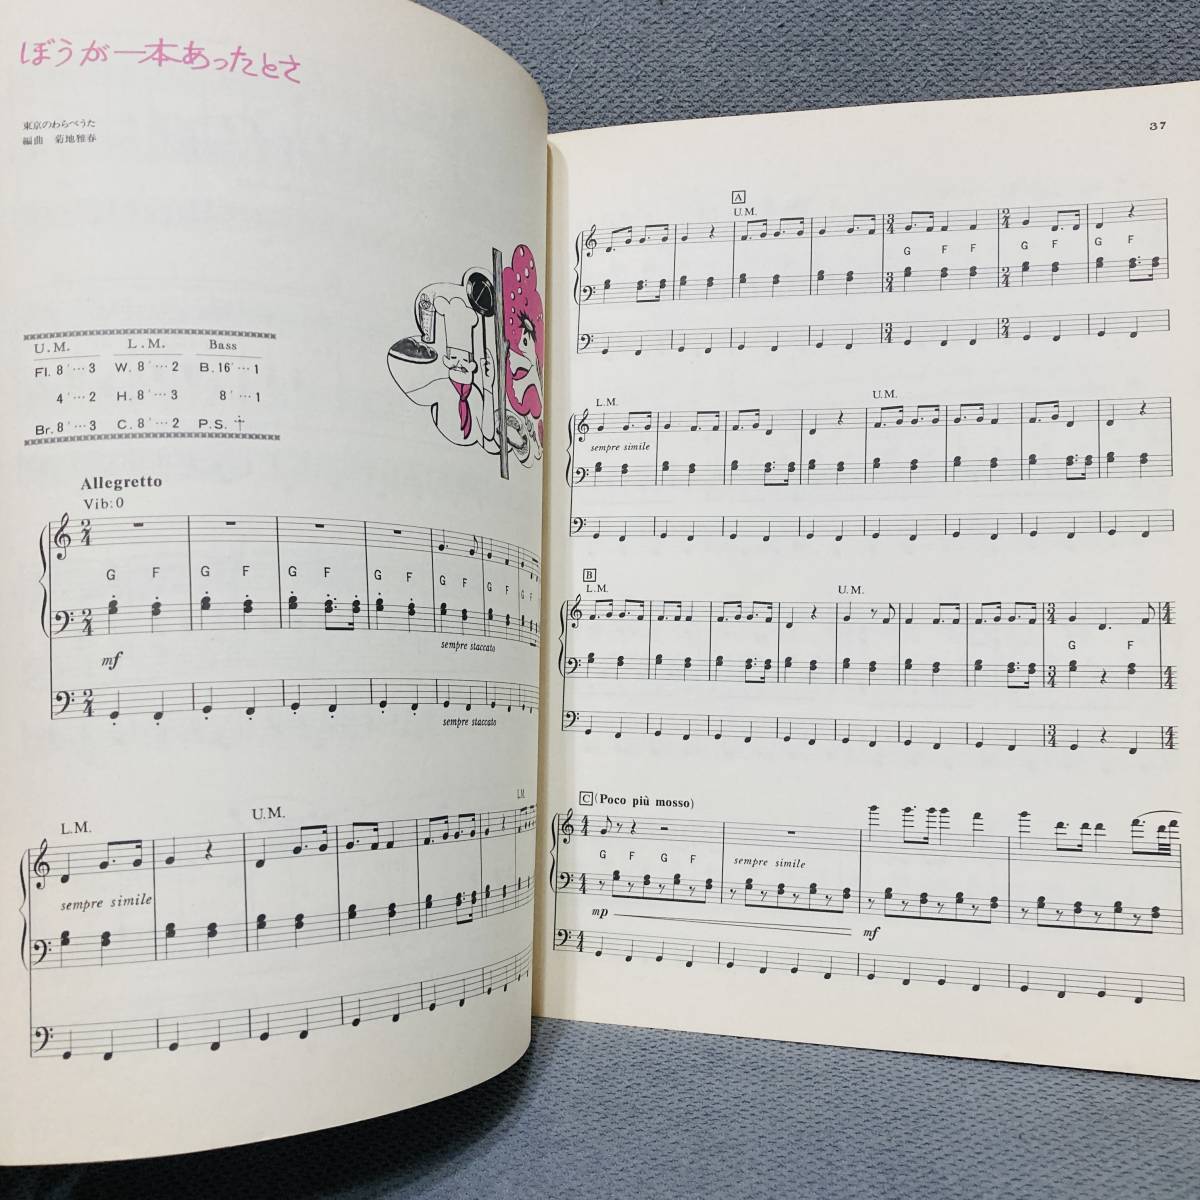 ぼうが一本あったとさ
東京のわらべうた
編曲 菊地雅春
U.M. L.M. Bass
Fl. 8′…3 W. 8′…2 B. 16′…1
4′…2 H. 8′…3 8′…1
Br. 8′…3 C. 8′…2 P.S. 
Allegretto
Vib:0
2/4
G F G F G F G F G F G F G F
2/4
mf
sempre staccato
2/4
sempre staccato
L.M. U.M. L.M.
sempre simile
37
A
U.M.
3/4 2/4
G F F G F G F
3/4 2/4
3/4 2/4
L.M. U.M.
sempre simile
B
L.M. U.M.
3/4 4/4
G F
3/4 4/4
3/4 4/4
C (Poco più mosso)
4/4
G F G F sempre simile
4/4
mp mf
4/4